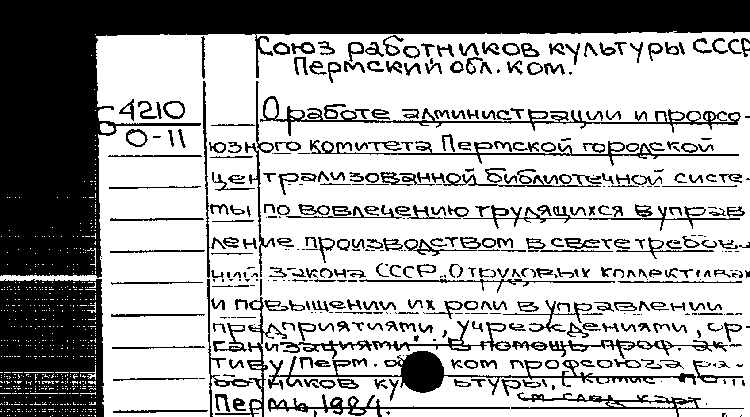 Союз работников культуры СССР
Пермский обл. ком.
Б 4210
0-11
О работе администрации и профсо-
юзного комитета Пермской городской
централизованной библиотечной систе-
мы по вовлечению трудящихся в управ
ление производством в свете требов
ний закона СССР „О трудовых коллективах
и повышении их роли в управлении
предприятиями, учреждениями, ор-
ганизациями": В помощь проф. ак-
тиву/Перм. ком профсоюза ра-
ботников культуры,
Пермь, 1984.
см след карт.